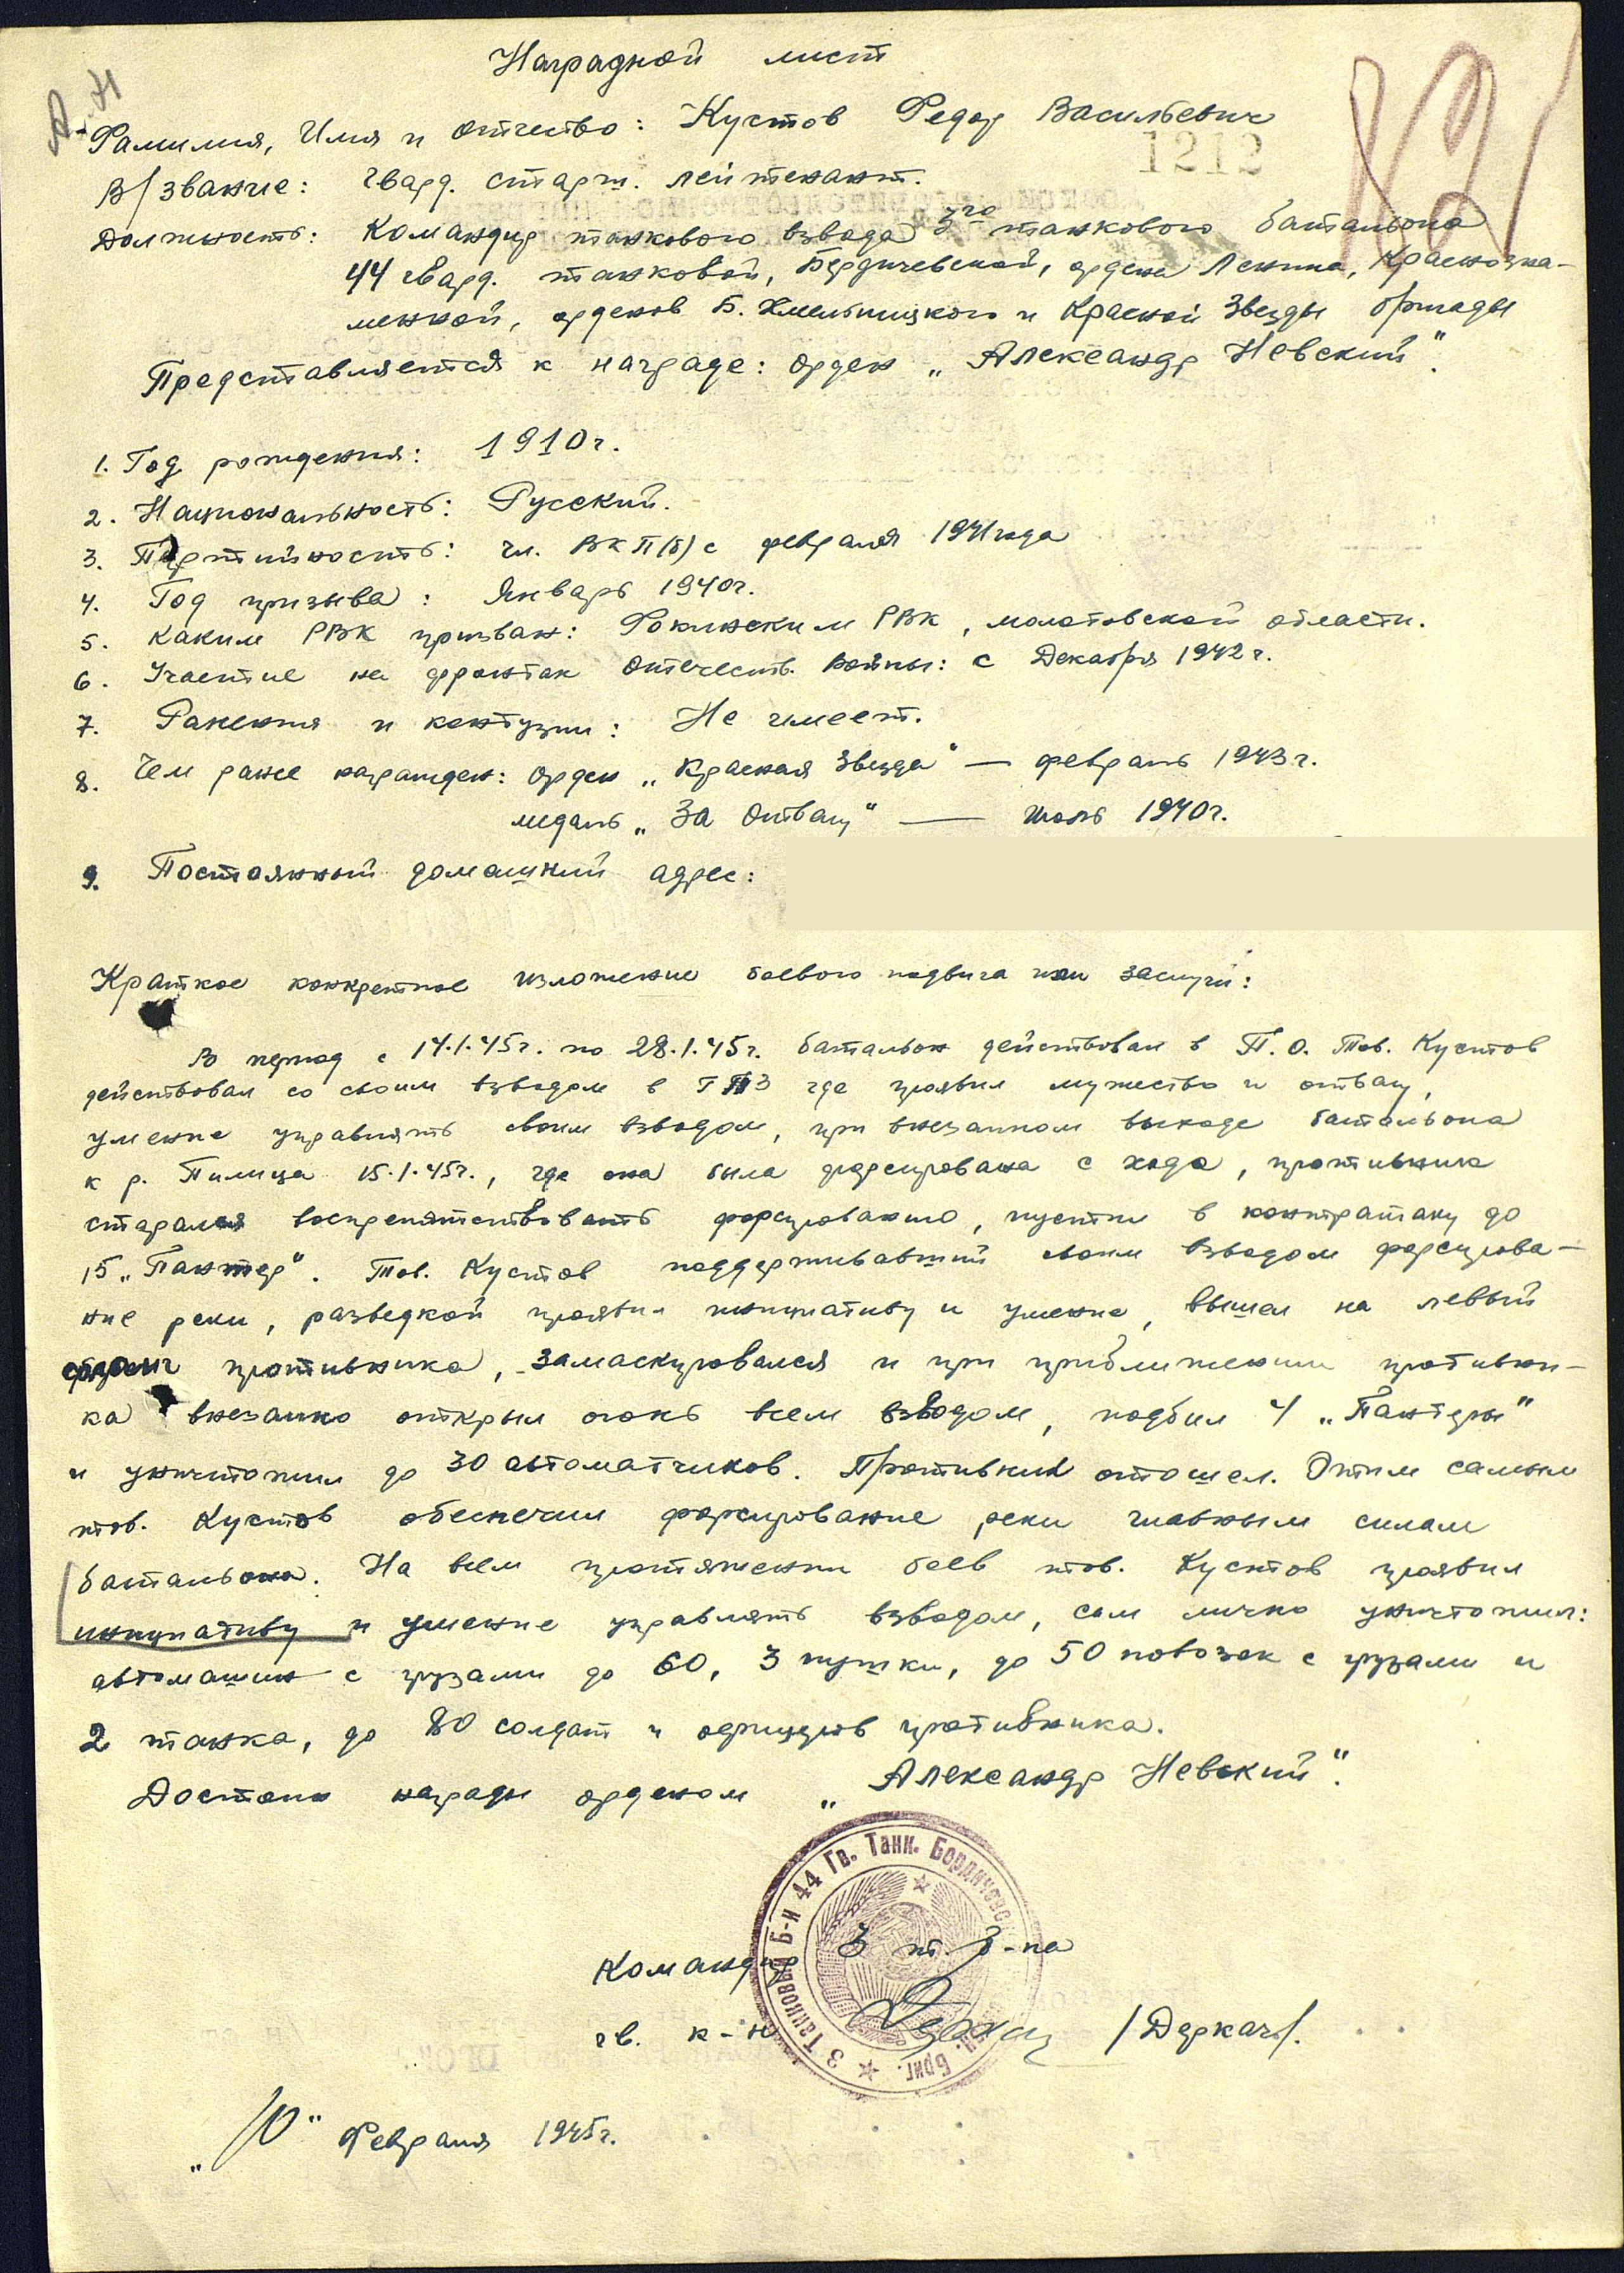 А.Н
Наградной лист
Фамилия, Имя и отчество: Кустов Федор Васильевич
1212
В/звание: гвард. старш. лейтенант.
Должность: Командир танкового взвода 3го танкового батальона
44 гвард. танковой, Бердичевской, ордена Ленина, Краснозна-
менной, орденов Б. Хмельницкого и Красной Звезды бригады
Представляется к награде: орден „Александр Невский".
1. Год рождения: 1910г.
2. Национальность: Русский.
3. Партийность: чл. ВКП(б) с февраля 1941 года
4. Год призыва: Январь 1940г.
5. Каким РВК призван: Фокинским РВК, молотовской области.
6. Участие на фронтах Отечеств. войны: с Декабря 1942г.
7. Ранения и контузии: Не имеет.
8. Чем ранее награжден: орден „Красная Звезда" — февраль 1943г.
медаль „За Отвагу" — июль 1940г.
9. Постоянный домашний адрес:
Краткое конкретное изложение боевого подвига или заслуги:
В период с 14.1.45г. по 28.1.45г. батальон действовал в П.О. Тов. Кустов
действовал со своим взводом в ГПЗ где проявил мужество и отвагу,
умение управлять своим взводом, при внезапном выходе батальона
к р. Пилица 15.1.45г., где она была форсирована с хода, противник
старался воспрепятствовать форсированию, пустив в контратаку до
15 „Пантер". Тов. Кустов поддерживавший своим взводом форсирова-
ние реки, разведкой проявил инициативу и умение, вышел на левый
фланг противника, замаскировался и при приближении противни-
ка внезапно открыл огонь всем взводом, подбил 4 „Пантеры"
и уничтожил до 30 автоматчиков. Противник отошел. Этим самым
тов. Кустов обеспечил форсирование реки главным силам
батальона. На всем протяжении боев тов. Кустов проявил
инициативу и умение управлять взводом, сам лично уничтожил:
автомашин с грузами до 60, 3 пушки, до 50 повозок с грузами и
2 танка, до 80 солдат и офицеров противника.
Достоин награды орденом „Александр Невский".
3 Танковый Б-н 44 Гв. Танк. Бердичевс
Бриг.
Командир 3 т. б-на
гв. к-н /Деркач/.
„10" Февраля 1945г.